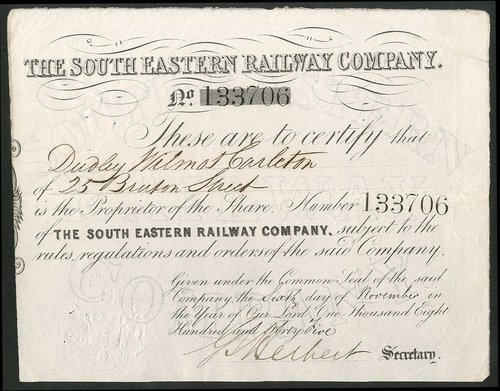 THE SOUTH EASTERN RAILWAY COMPANY.
No. 133706
These are to certify that
Dudley Wilmot Carleton
of 25 Bruton Street
is the Proprietor of the Share, Number 133706
of THE SOUTH EASTERN RAILWAY COMPANY, subject to the
rules, regulations and orders of the said Company.
Given under the Common Seal of the said
Company, the Sixth day of November in
the Year of Our Lord One Thousand Eight
Hundred and Forty Five
G Herbert Secretary.